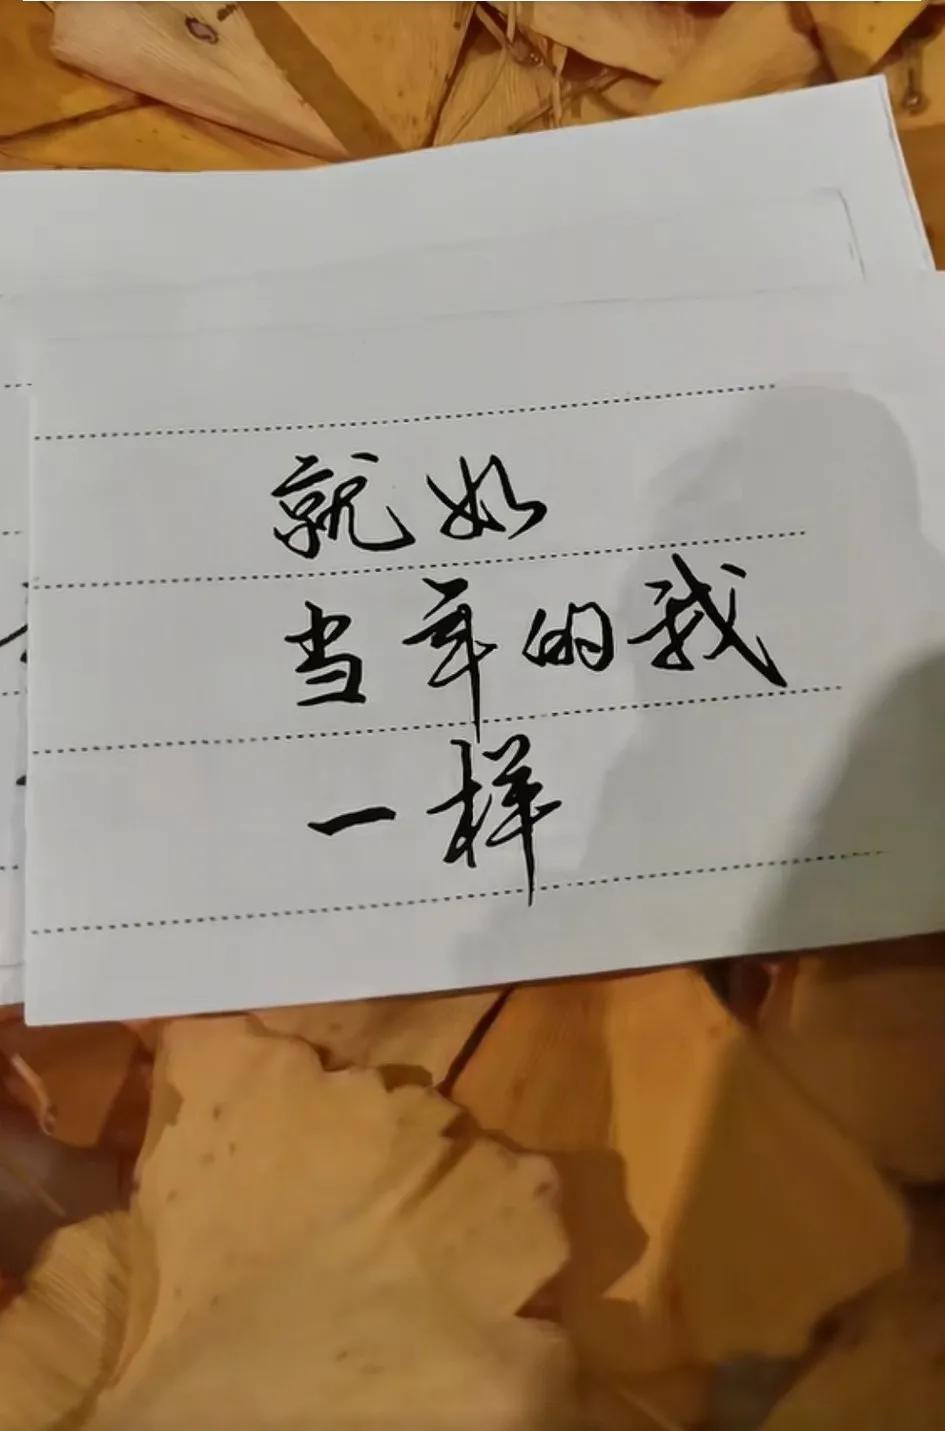 就如
当年的我
一样